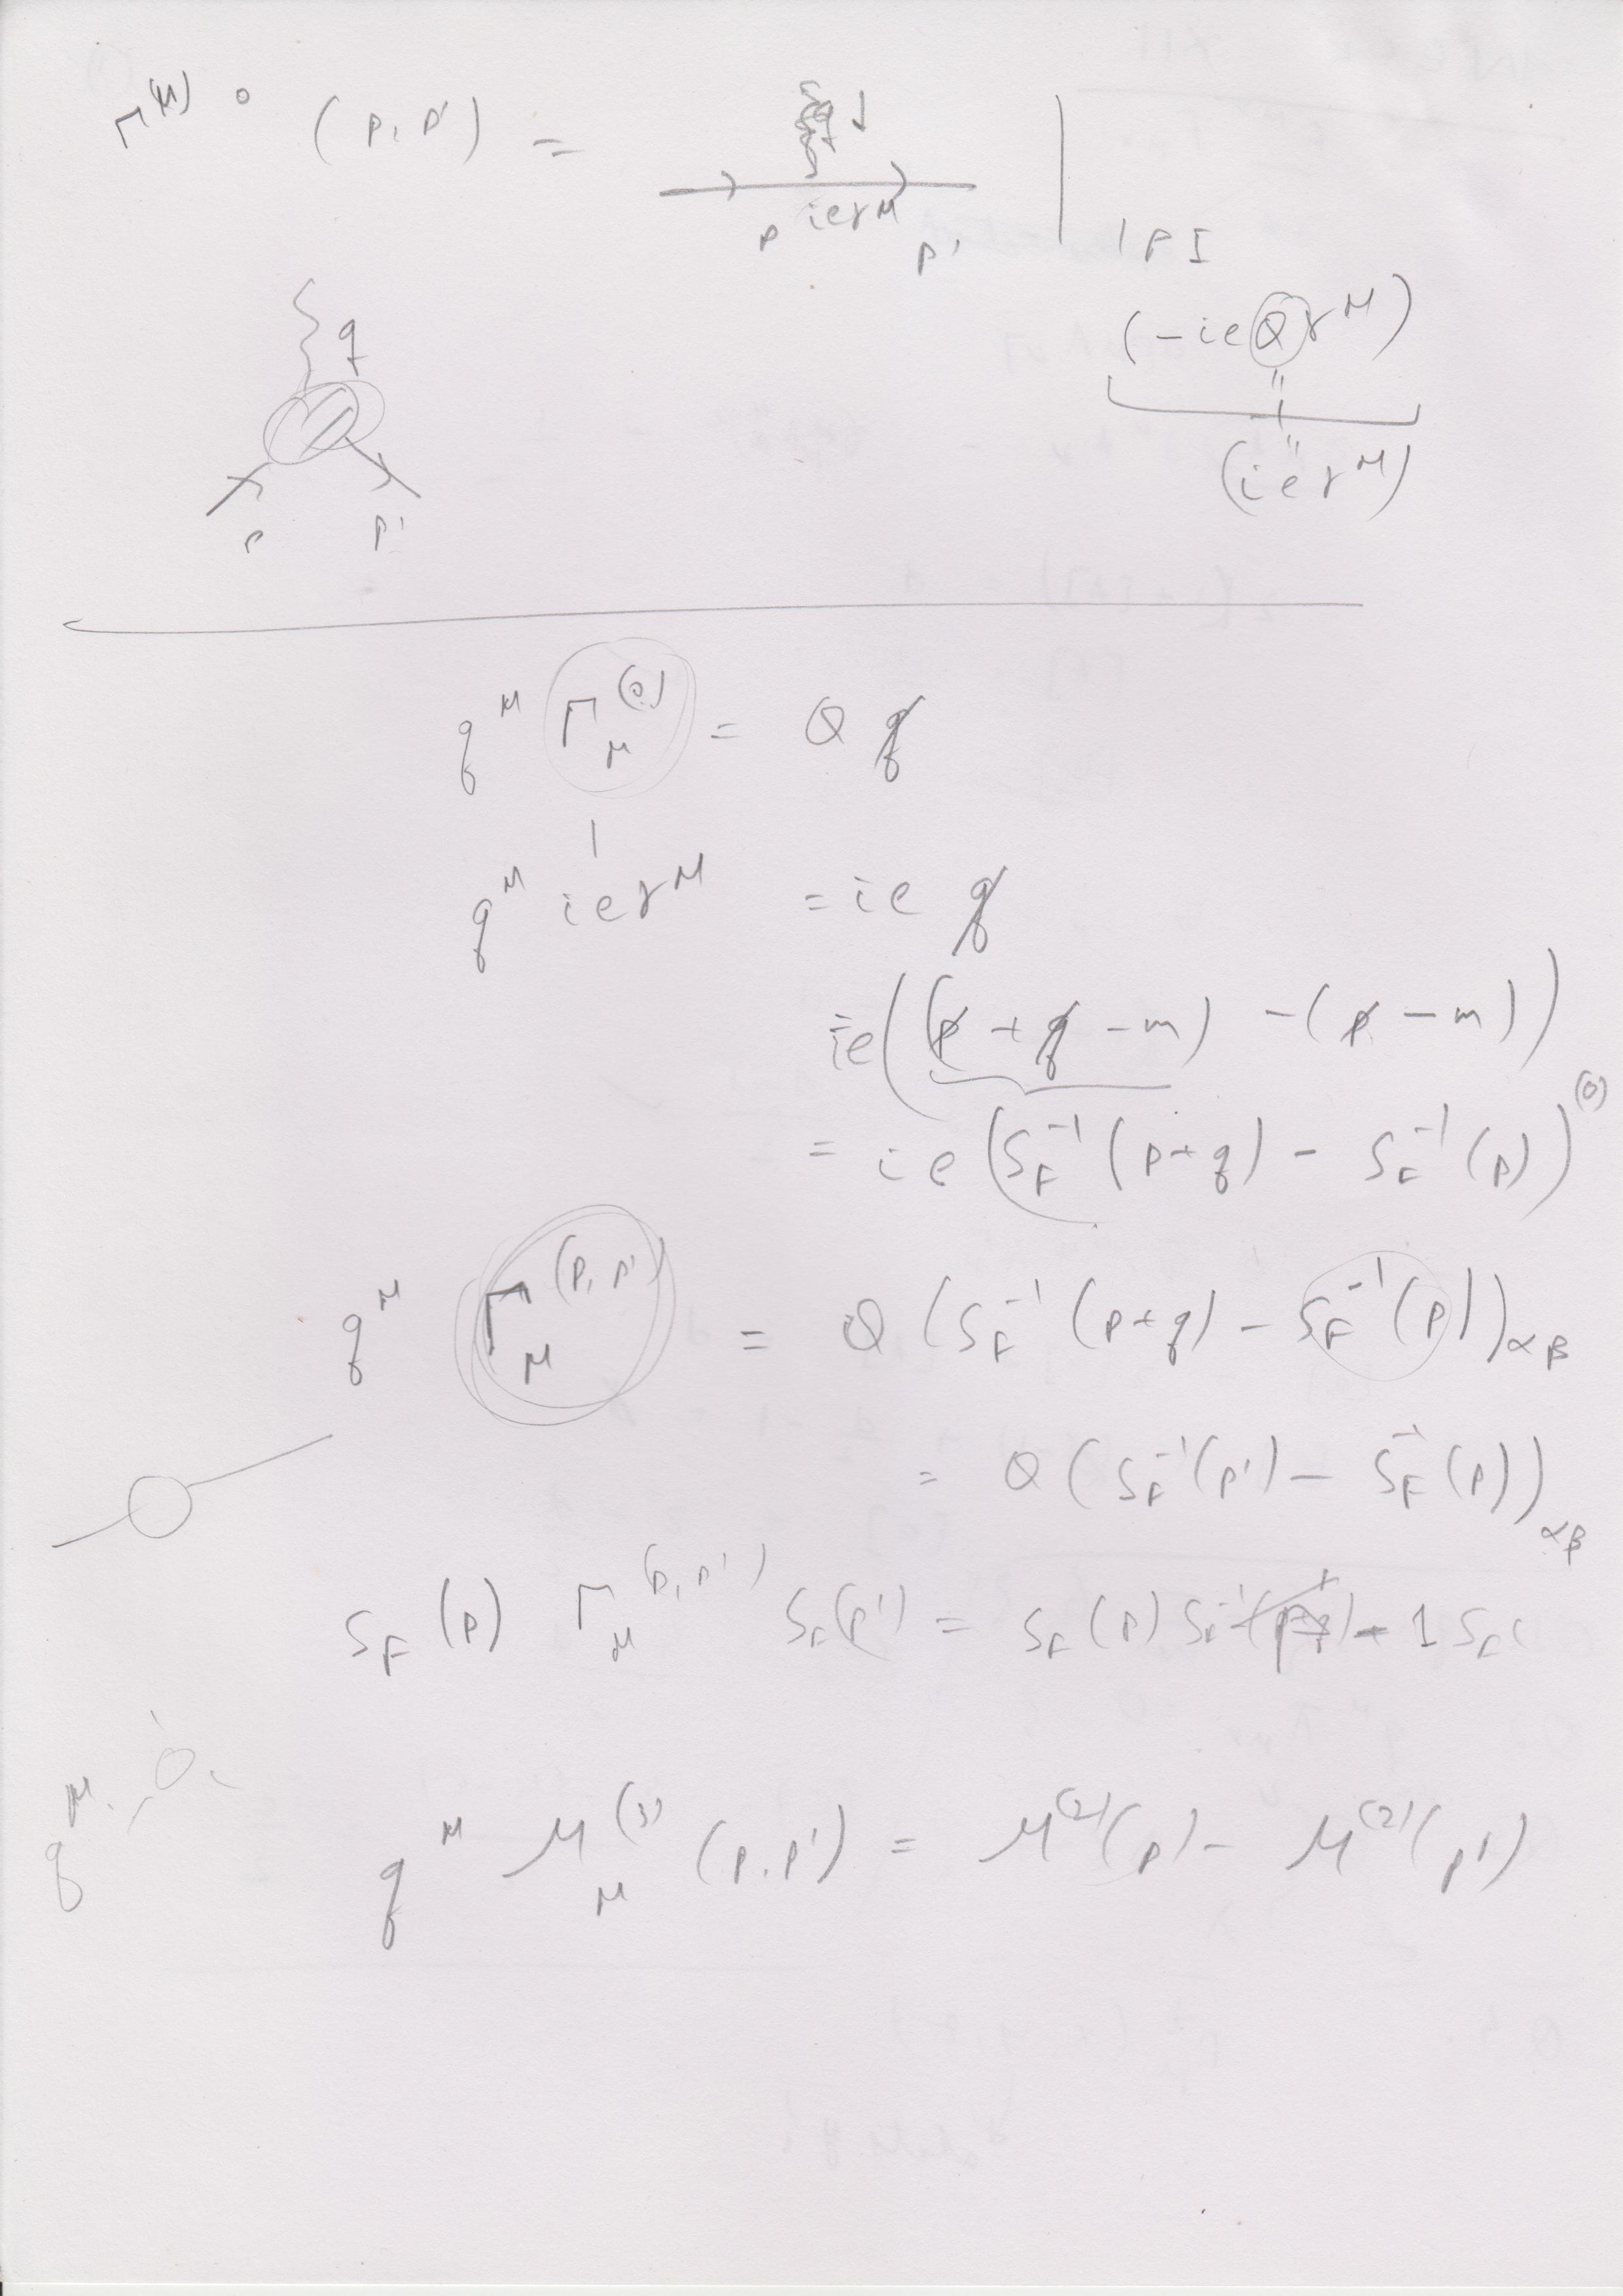 Γ^(μ) ° (p, p') =
q ↓
p ieγ^μ p'
| 1PI
q
(-ieQγ^μ)
"
-1
"
(ieγ^μ)
p p'
q^μ Γ_μ^(0) = Q q̸
q^μ ieγ^μ = ie q̸
ie((p̸ + q̸ - m) - (p̸ - m))
= ie (S_F^-1 (p+q) - S_F^-1 (p))^(0)
q^μ Γ_μ^(p, p') = Q (S_F^-1 (p+q) - S_F^-1 (p))_αβ
= Q (S_F^-1 (p') - S_F^-1 (p))_αβ
S_F (p) Γ_μ^(p, p') S_F(p') = S_F (p) S_F^-1 - 1 S_F(
q^μ
q^μ M_μ^(3) (p, p') = M^(2)(p) - M^(2)(p')